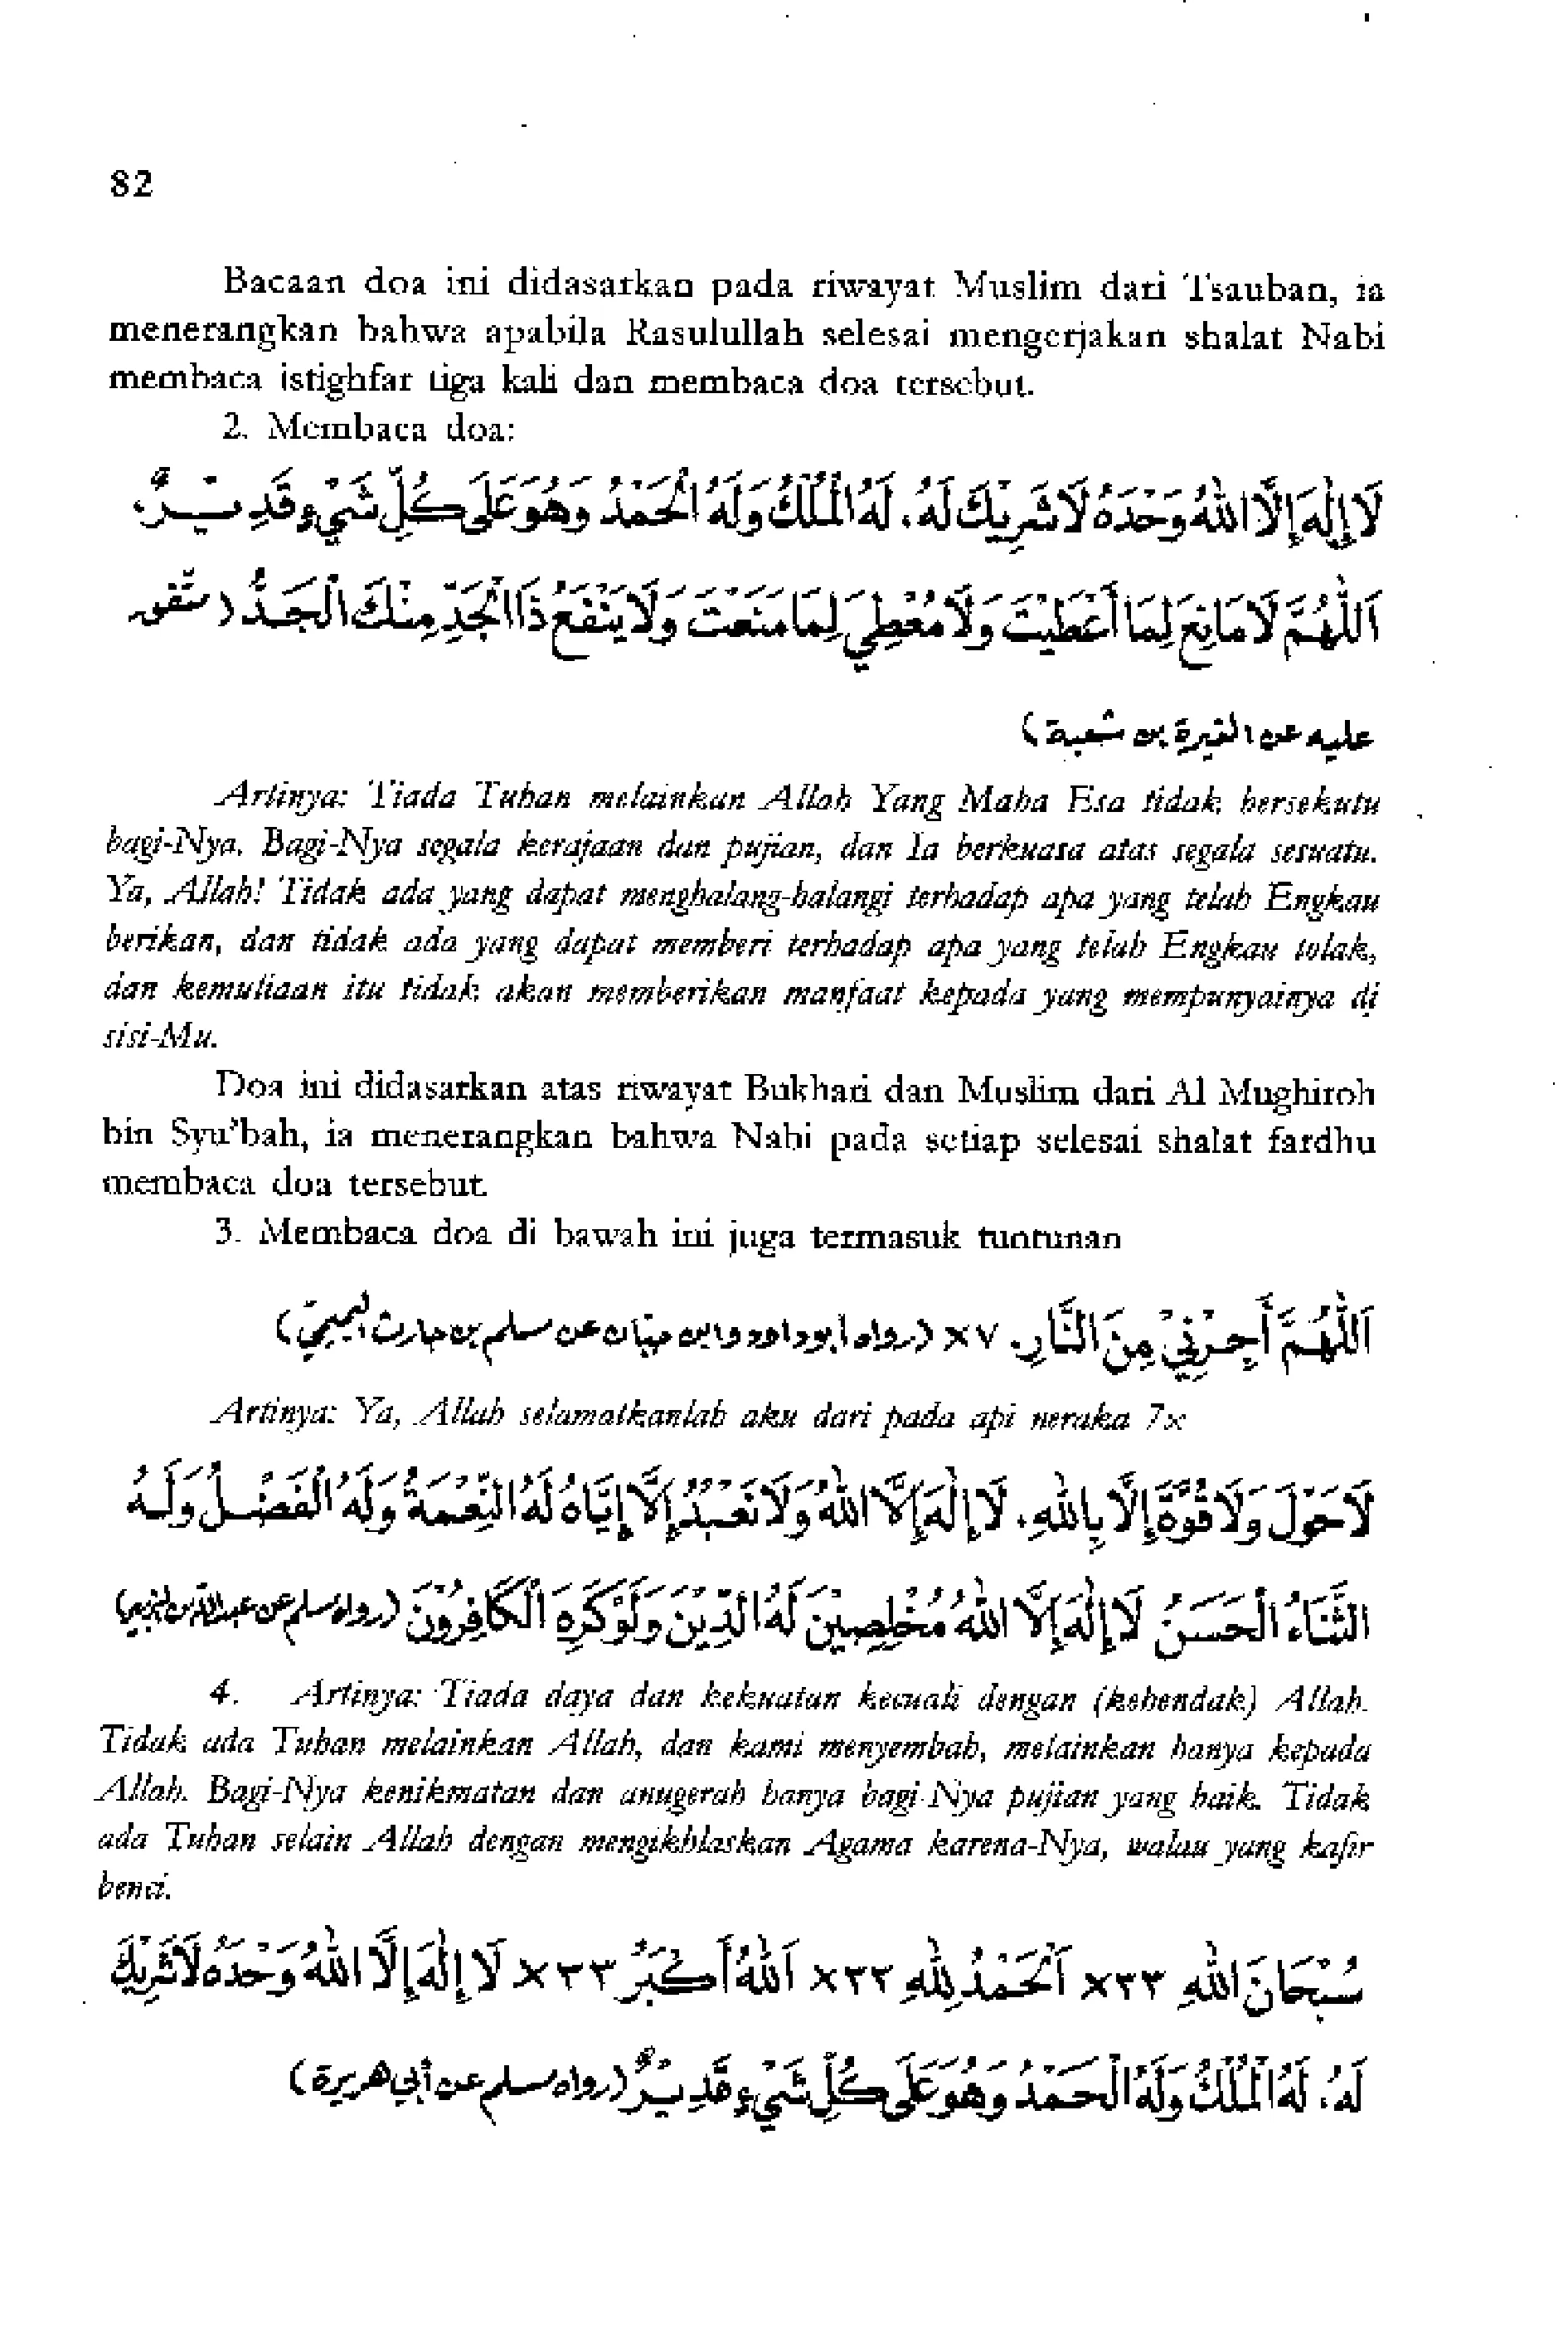 82
Bacaan doa ini didasarkan pada riwayat Muslim dari Tsauban, ia
menerangkan bahwa apabila Rasulullah selesai mengerjakan shalat Nabi
membaca istighfar tiga kali dan membaca doa tersebut.
2. Membaca doa:
لَا إِلٰهَ إِلَّا اللهُ وَحْدَهُ لَا شَرِيْكَ لَهُ. لَهُ الْمُلْكُ وَلَهُ الْحَمْدُ وَهُوَ عَلَى كُلِّ شَيْءٍ قَدِيْرٌ،
اَللّٰهُمَّ لَا مَانِعَ لِمَا أَعْطَيْتَ وَلَا مُعْطِيَ لِمَا مَنَعْتَ وَلَا يَنْفَعُ ذَا الْجَدِّ مِنْكَ الْجَدُّ (متفق
عليه عن المغيرة بن شعبة)
Artinya: Tiada Tuhan melainkan Allah Yang Maha Esa tidak bersekutu
bagi-Nya. Bagi-Nya segala kerajaan dan pujian, dan Ia berkuasa atas segala sesuatu.
Ya, Allah! Tidak ada yang dapat menghalang-halangi terhadap apa yang telah Engkau
berikan, dan tidak ada yang dapat memberi terhadap apa yang telah Engkau tolak,
dan kemuliaan itu tidak akan memberikan manfaat kepada yang mempunyainya di
sisi-Mu.
Doa ini didasarkan atas riwayat Bukhari dan Muslim dari Al Mughiroh
bin Syu'bah, ia menerangkan bahwa Nabi pada setiap selesai shalat fardhu
membaca doa tersebut.
3. Membaca doa di bawah ini juga termasuk tuntunan
اَللّٰهُمَّ أَجِرْنِيْ مِنَ النَّارِ. ٧× (رواه ابوداود وابن حبان عن مسلم بن حارث التميمي)
Artinya: Ya, Allah selamatkanlah aku dari pada api neraka 7x
لَا حَوْلَ وَلَا قُوَّةَ إِلَّا بِاللهِ. لَا إِلٰهَ إِلَّا اللهُ وَلَا نَعْبُدُ إِلَّا إِيَّاهُ لَهُ النِّعْمَةُ وَلَهُ الْفَضْلُ وَلَهُ
الثَّنَاءُ الْحَسَنُ لَا إِلٰهَ إِلَّا اللهُ مُخْلِصِيْنَ لَهُ الدِّيْنَ وَلَوْ كَرِهَ الْكَافِرُوْنَ (رواه مسلم عن عبدالله بن الزبير)
4. Artinya: Tiada daya dan kekuatan kecuali dengan (kehendak) Allah.
Tidak ada Tuhan melainkan Allah, dan kami menyembah, melainkan hanya kepada
Allah. Bagi-Nya kenikmatan dan anugerah hanya bagi-Nya pujian yang baik. Tidak
ada Tuhan selain Allah dengan mengikhlaskan Agama karena-Nya, walau yang kafir
benci.
سُبْحَانَ اللهِ ٣٣× اَلْحَمْدُ لِلّٰهِ ٣٣× اَللهُ أَكْبَرُ ٣٣× لَا إِلٰهَ إِلَّا اللهُ وَحْدَهُ لَا شَرِيْكَ
لَهُ، لَهُ الْمُلْكُ وَلَهُ الْحَمْدُ وَهُوَ عَلَى كُلِّ شَيْءٍ قَدِيْرٌ (رواه مسلم عن أبي هريرة)